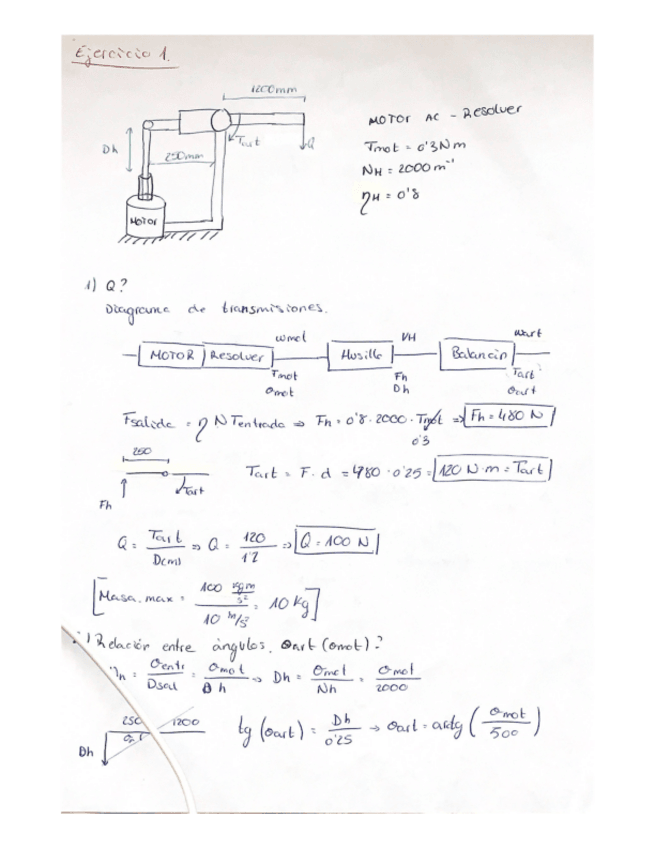 Ejercicio 1.
1200mm
Dh
250mm
Tart
Q
MOTOR
MOTOR AC - Resolver
Tmot = 0'3 Nm
NH = 2000 m⁻¹
ηH = 0'8
1) Q?
Diagrama de transmisiones.
MOTOR Resolver
ωmot
Tmot
θmot
Husillo
VH
Fh
Dh
Balancín
ωart
Tart
θart
Fsalida = η N Tentrada ⇒ Fh = 0'8 · 2000 · Tmot ⇒ Fh = 480 N
0'3
250
Fh
Tart
Tart = F · d = 480 · 0'25 = 120 N·m = Tart
Q = Tart / D(m) ⇒ Q = 120 / 1'2 ⇒ Q = 100 N
[Masa. max = 100 kgm/s² / 10 m/s² = 10 kg]
) Relación entre ángulos. θart (θmot)?
= θentr / Dsal = θmot / Dh ⇒ Dh = θmot / Nh = θmot / 2000
250 1200
Dh
tg (θart) = Dh / 0'25 → θart = arctg (θmot / 500)